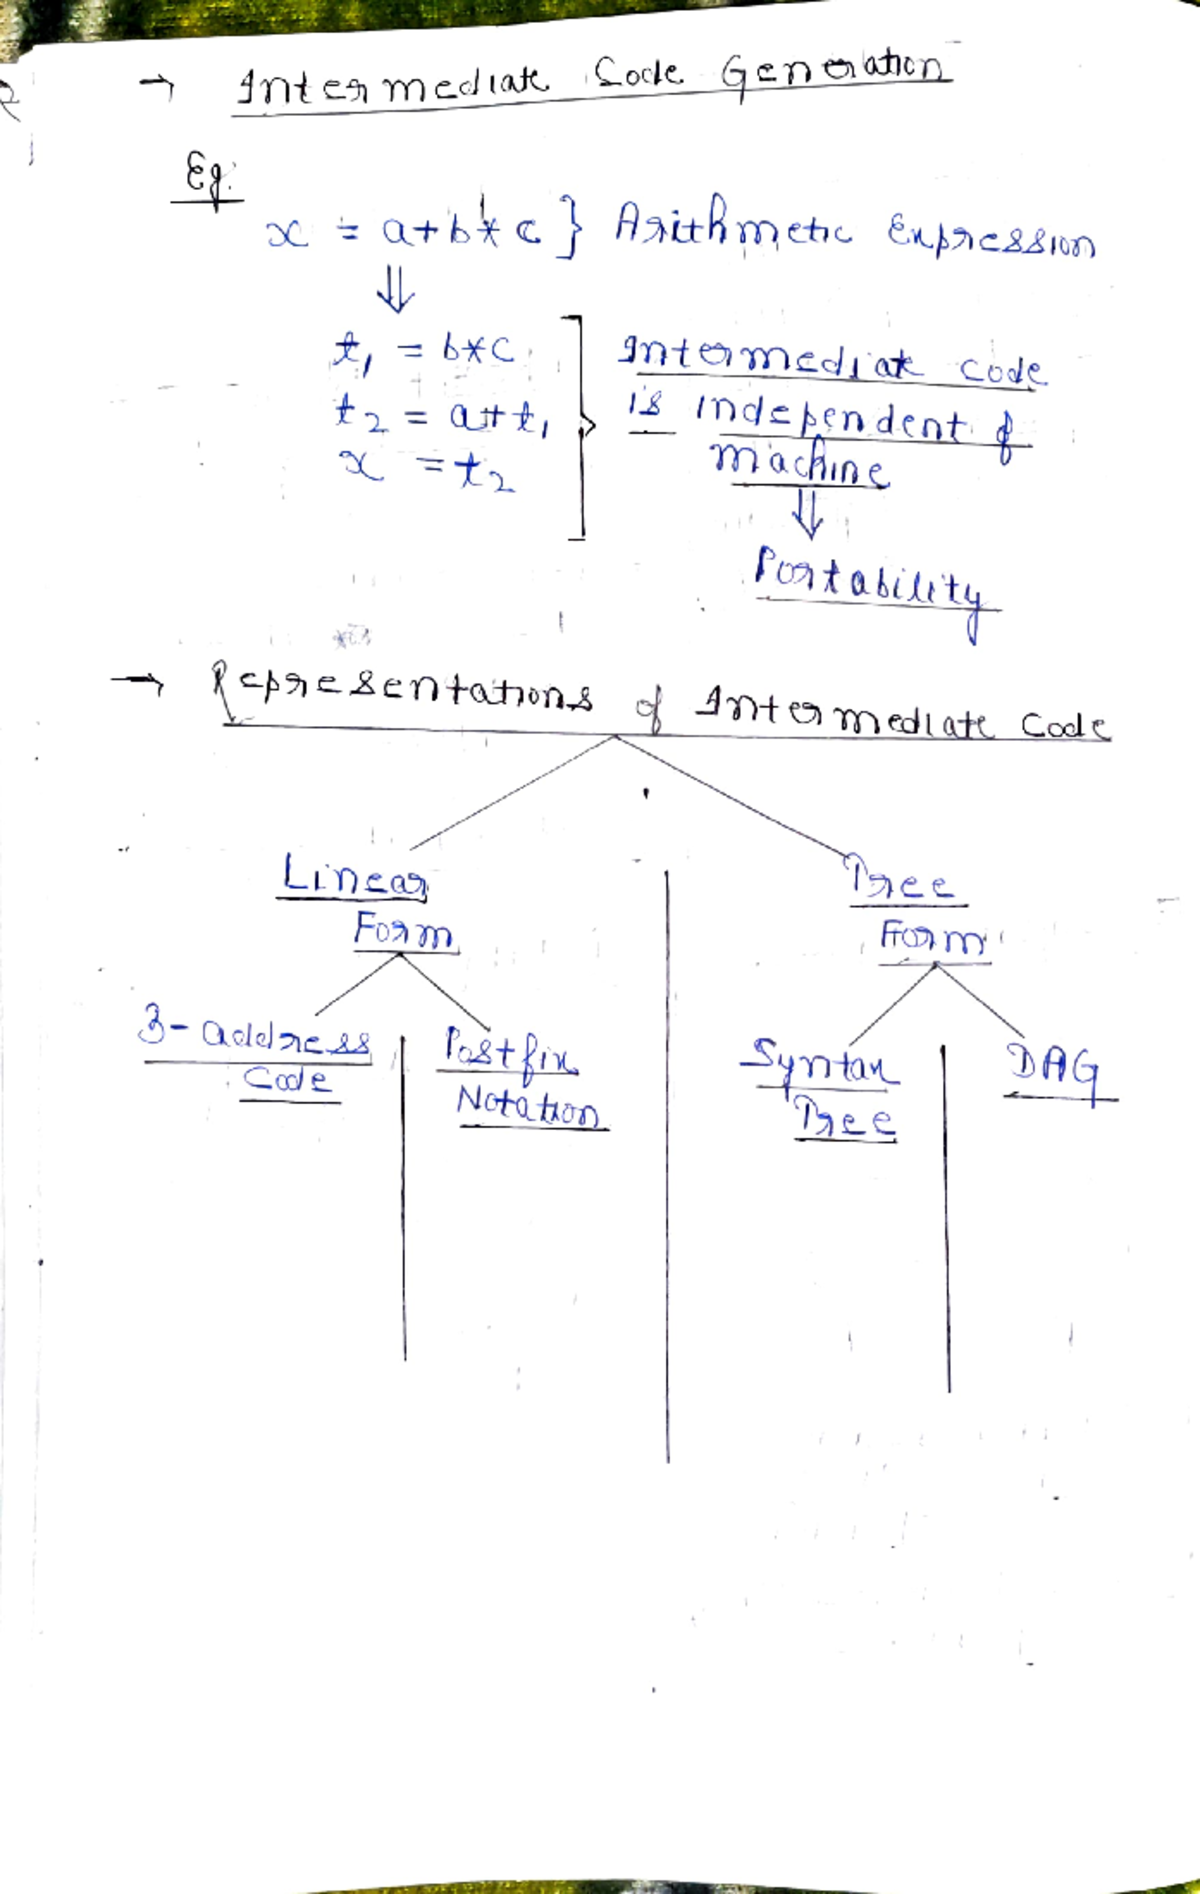 → Intermediate Code Generation
Eg:
x = a+b*c } Arithmetic Expression
⇓
t1 = b*c
t2 = a+t1
x = t2
Intermediate code
is independent of
machine
⇓
Portability
→ Representations of Intermediate Code
Linear
Form
Tree
Form
3-address
Code
Postfix
Notation
Syntax
Tree
DAG